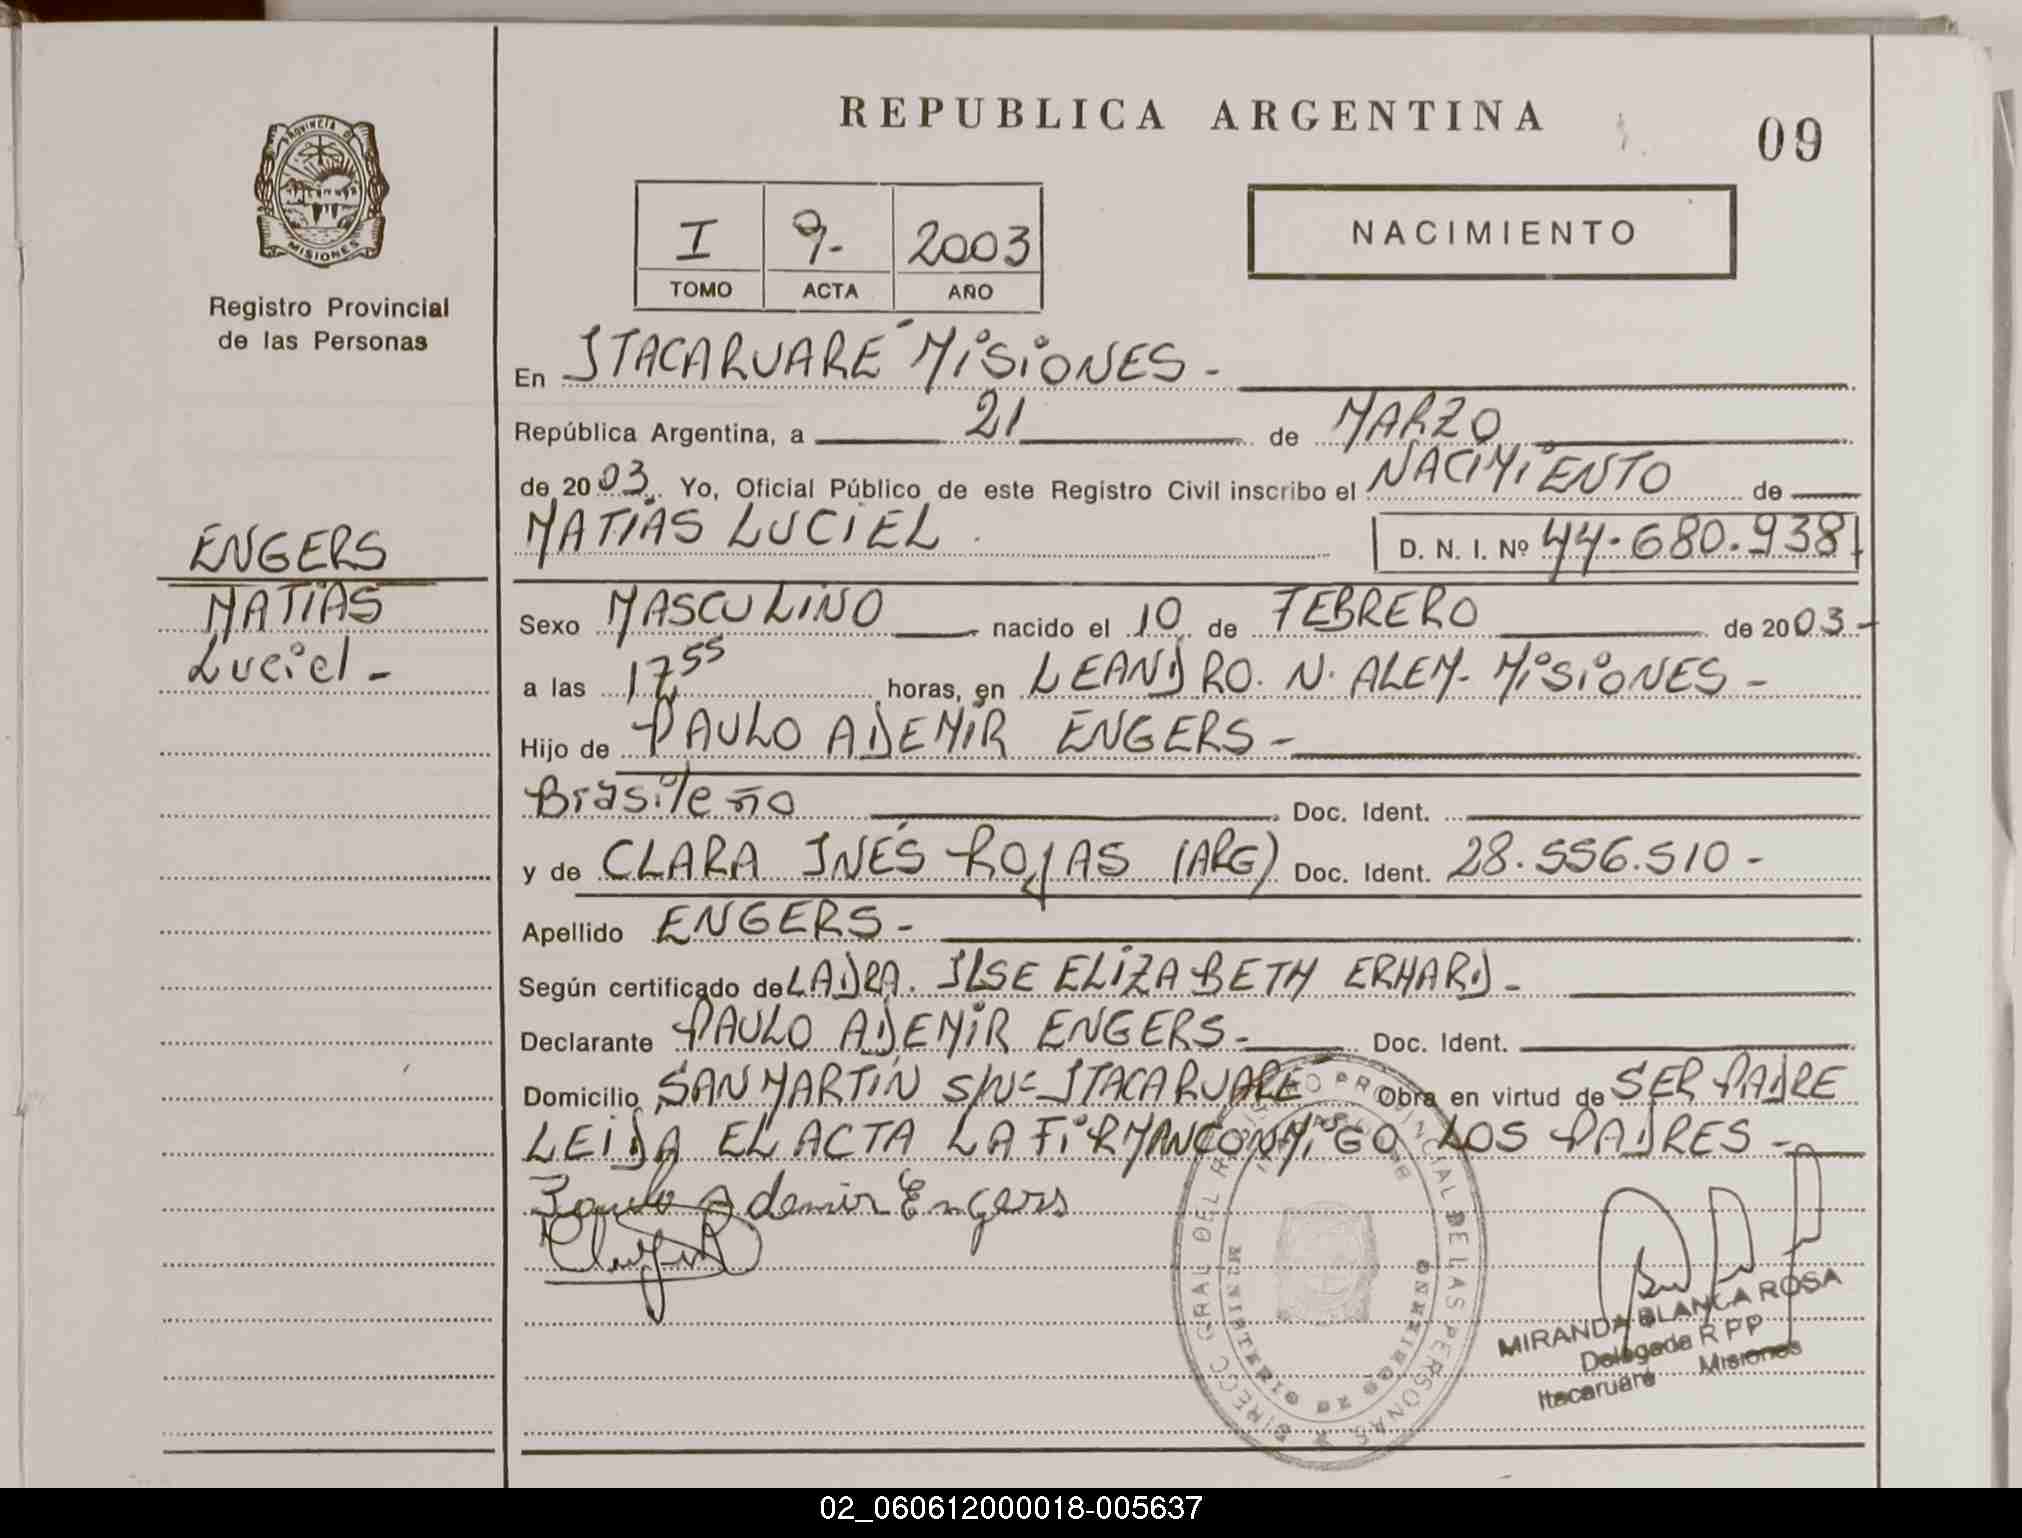 REPUBLICA ARGENTINA
09
PROVINCIA DE
MISIONES
Registro Provincial
de las Personas
I 9- 2003
TOMO ACTA AÑO
NACIMIENTO
En ITACARUARÉ MiSiONES -
República Argentina, a 21 de MARZO
de 2003. Yo, Oficial Público de este Registro Civil inscribo el NACIMiENTO de
MATÍAS LUCiEL D. N. I. Nº 44.680.938
ENGERS
MATÍAS
Luciel -
Sexo MASCULiNO nacido el 10 de FEBRERO de 2003-
a las 17,55 horas, en LEANDRO. N. ALEM- MiSiONES -
Hijo de PAULO ADEMiR ENGERS -
Brasileño Doc. Ident.
y de CLARA INÉS ROJAS (ARG) Doc. Ident. 28.556.510 -
Apellido ENGERS -
Según certificado de LA DRA. ILSE ELiZABETH ERHARD -
Declarante PAULO ADEMiR ENGERS - Doc. Ident.
Domicilio SAN MARTÍN S/Nº ITACARUARÉ Obra en virtud de SER PADRE
LEIDA EL ACTA LA FiRMAN CONMiGO LOS PADRES -
Paulo Ademir Engers
DIRECC GRAL DEL REGISTRO PROVINCIAL DE LAS PERSONAS
MINISTERIO DE GOBIERNO
MIRANDA BLANCA ROSA
Delegada R P P
Itacaruaré Misiones
02_060612000018-005637